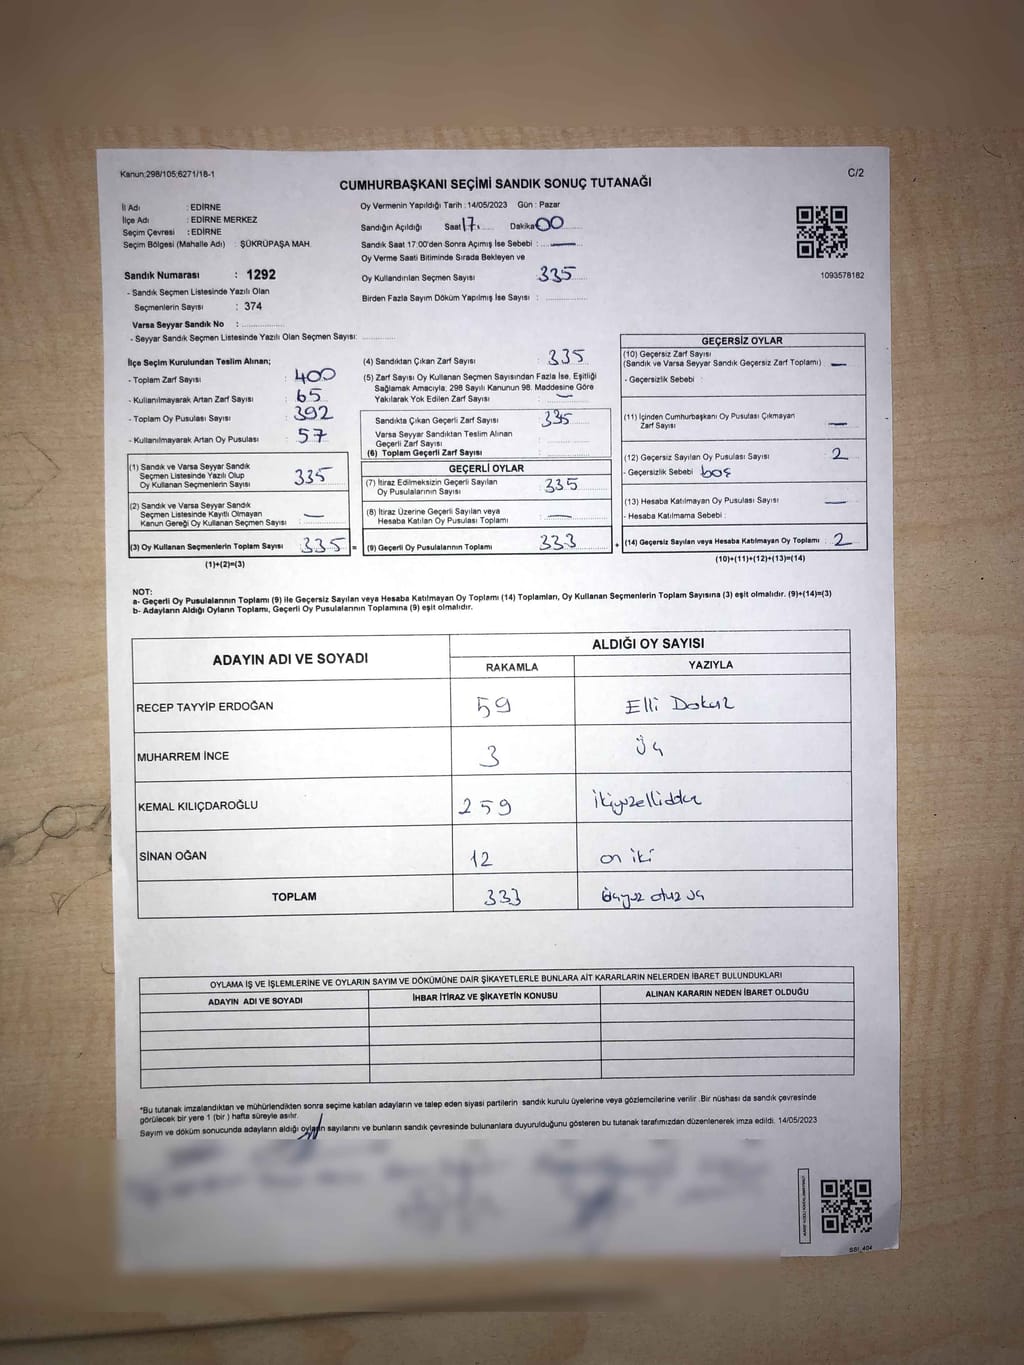 Kanun:298/105;6271/18-1
C/2
CUMHURBAŞKANI SEÇİMİ SANDIK SONUÇ TUTANAĞI
İl Adı : EDİRNE
İlçe Adı : EDİRNE MERKEZ
Seçim Çevresi : EDİRNE
Seçim Bölgesi (Mahalle Adı) : ŞÜKRÜPAŞA MAH.
Sandık Numarası : 1292
- Sandık Seçmen Listesinde Yazılı Olan
Seçmenlerin Sayısı : 374
Varsa Seyyar Sandık No :
- Seyyar Sandık Seçmen Listesinde Yazılı Olan Seçmen Sayısı:
Oy Vermenin Yapıldığı Tarih : 14/05/2023 Gün : Pazar
Sandığın Açıldığı Saat 17 Dakika 00
Sandık Saat 17:00'den Sonra Açımış İse Sebebi : —
Oy Verme Saati Bitiminde Sırada Bekleyen ve
Oy Kullandırılan Seçmen Sayısı 335
Birden Fazla Sayım Döküm Yapılmış İse Sayısı :
1093578182
İlçe Seçim Kurulundan Teslim Alınan;
- Toplam Zarf Sayısı : 400
- Kullanılmayarak Artan Zarf Sayısı : 65
- Toplam Oy Pusulası Sayısı : 392
- Kullanılmayarak Artan Oy Pusulası : 57
(1) Sandık ve Varsa Seyyar Sandık
Seçmen Listesinde Yazılı Olup
Oy Kullanan Seçmenlerin Sayısı 335
(2) Sandık ve Varsa Seyyar Sandık
Seçmen Listesinde Kayıtlı Olmayan
Kanun Gereği Oy Kullanan Seçmen Sayısı : —
(3) Oy Kullanan Seçmenlerin Toplam Sayısı 335 =
(1)+(2)=(3)
(4) Sandıktan Çıkan Zarf Sayısı : 335
(5) Zarf Sayısı Oy Kullanan Seçmen Sayısından Fazla İse, Eşitliği
Sağlamak Amacıyla, 298 Sayılı Kanunun 98. Maddesine Göre
Yakılarak Yok Edilen Zarf Sayısı : —
Sandıkta Çıkan Geçerli Zarf Sayısı 335
Varsa Seyyar Sandıktan Teslim Alınan
Geçerli Zarf Sayısı
(6) Toplam Geçerli Zarf Sayısı :
GEÇERLİ OYLAR
(7) İtiraz Edilmeksizin Geçerli Sayılan
Oy Pusulalarının Sayısı : 335
(8) İtiraz Üzerine Geçerli Sayılan veya
Hesaba Katılan Oy Pusulası Toplamı : —
(9) Geçerli Oy Pusulalarının Toplamı 333 +
GEÇERSİZ OYLAR
(10) Geçersiz Zarf Sayısı
(Sandık ve Varsa Seyyar Sandık Geçersiz Zarf Toplamı) —
- Geçersizlik Sebebi :
(11) İçinden Cumhurbaşkanı Oy Pusulası Çıkmayan
Zarf Sayısı —
(12) Geçersiz Sayılan Oy Pusulası Sayısı 2
- Geçersizlik Sebebi boş
(13) Hesaba Katılmayan Oy Pusulası Sayısı —
- Hesaba Katılmama Sebebi :
(14) Geçersiz Sayılan veya Hesaba Katılmayan Oy Toplamı : 2
(10)+(11)+(12)+(13)=(14)
NOT:
a- Geçerli Oy Pusulalarının Toplamı (9) ile Geçersiz Sayılan veya Hesaba Katılmayan Oy Toplamı (14) Toplamları, Oy Kullanan Seçmenlerin Toplam Sayısına (3) eşit olmalıdır. (9)+(14)=(3)
b- Adayların Aldığı Oyların Toplamı, Geçerli Oy Pusulalarının Toplamına (9) eşit olmalıdır.
ADAYIN ADI VE SOYADI ALDIĞI OY SAYISI
RAKAMLA YAZIYLA
RECEP TAYYİP ERDOĞAN 59 Elli Dokuz
MUHARREM İNCE 3 Üç
KEMAL KILIÇDAROĞLU 259
SİNAN OĞAN 12 on iki
TOPLAM 333 üçyüz otuz üç
OYLAMA İŞ VE İŞLEMLERİNE VE OYLARIN SAYIM VE DÖKÜMÜNE DAİR ŞİKAYETLERLE BUNLARA AİT KARARLARIN NELERDEN İBARET BULUNDUKLARI
ADAYIN ADI VE SOYADI İHBAR İTİRAZ VE ŞİKAYETİN KONUSU ALINAN KARARIN NEDEN İBARET OLDUĞU
*Bu tutanak imzalandıktan ve mühürlendikten sonra seçime katılan adayların ve talep eden siyasi partilerin sandık kurulu üyelerine veya gözlemcilerine verilir .Bir nüshası da sandık çevresinde
görülecek bir yere 1 (bir ) hafta süreyle asılır.
Sayım ve döküm sonucunda adayların aldığı oyların sayılarını ve bunların sandık çevresinde bulunanlara duyurulduğunu gösteren bu tutanak tarafımızdan düzenlenerek imza edildi. 14/05/2023